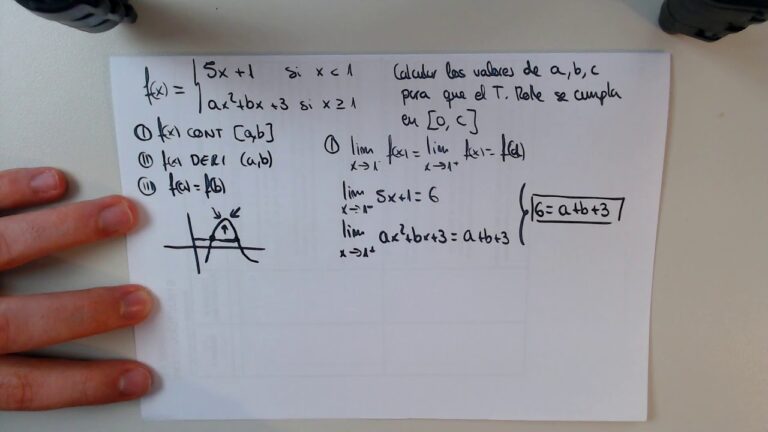 f(x) = { 5x + 1 si x < 1
ax² + bx + 3 si x ≥ 1
Calcular los valores de a, b, c
para que el T. Rolle se cumpla
en [0, c]
I f(x) CONT [a,b]
II f(x) DERI (a,b)
III f(a) = f(b)
I lim x→1⁻ f(x) = lim x→1⁺ f(x) = f(1)
lim x→1⁻ 5x+1 = 6
lim x→1⁺ ax²+bx+3 = a+b+3
6 = a+b+3